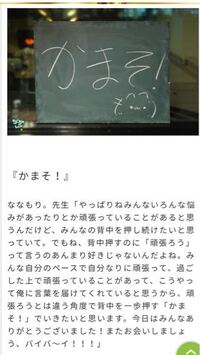 かまそ!
『かまそ！』
ななもり。先生「やっぱりねみんないろんな悩
みがあったりとか頑張っていることがあると思
うんだけど、みんなの背中を押し続けたいと思
っていて。でもね、背中押すのに「頑張ろう」
って言うのあんまり好きじゃないんだよね。み
んな自分のペースで自分なりに頑張って、過ご
した上で頑張っていることがあって、こうやっ
て俺に言葉を届けてくれていると思うから、頑
張ろうとは違う角度で背中を一歩押す「かま
そ！」でいきたいと思います。今日はみんなあ
りがとうございました！またお会いしましょ
う、バイバ～イ！！！」